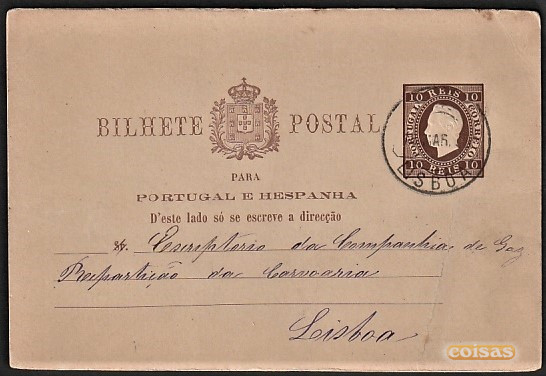 10 REIS 10
PORTUGAL CORREIO
10 REIS 10
BILHETE POSTAL
MAR.
LISBOA
PARA
PORTUGAL E HESPANHA
D'este lado só se escreve a direcção
Escriptorio da Companhia de Gaz
Repartição da Carvoaria
Lisboa
coisas